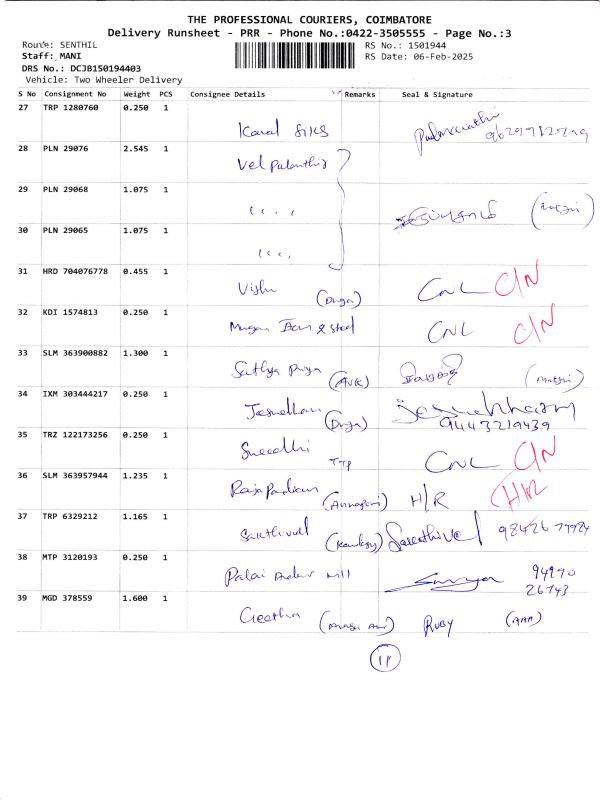 THE PROFESSIONAL COURIERS, COIMBATORE
Delivery Runsheet - PRR - Phone No.:0422-3505555 - Page No.:3
Route: SENTHIL RS No.: 1501944
Staff: MANI RS Date: 06-Feb-2025
DRS No.: DCJB150194403
Vehicle: Two Wheeler Delivery
S No Consignment No Weight PCS Consignee Details Remarks Seal & Signature
27 TRP 1280760 0.250 1
28 PLN 29076 2.545 1
Vel
29 PLN 29068 1.075 1
30 PLN 29065 1.075 1
31 HRD 704076778 0.455 1
Vishu (Durga) CNL C/N
32 KDI 1574813 0.250 1
Murugan & Steel CNL C/N
33 SLM 363900882 1.300 1
Sathya Priya
34 IXM 303444217 0.250 1
(Durga)
9443219439
35 TRZ 122173256 0.250 1
TTP CNL C/N
36 SLM 363957944 1.235 1
H/R H/R
37 TRP 6329212 1.165 1
Sakthivel 98426 79984
38 MTP 3120193 0.250 1
Mill Surya 94990
26743
39 MGD 378559 1.600 1
Geetha RUBY